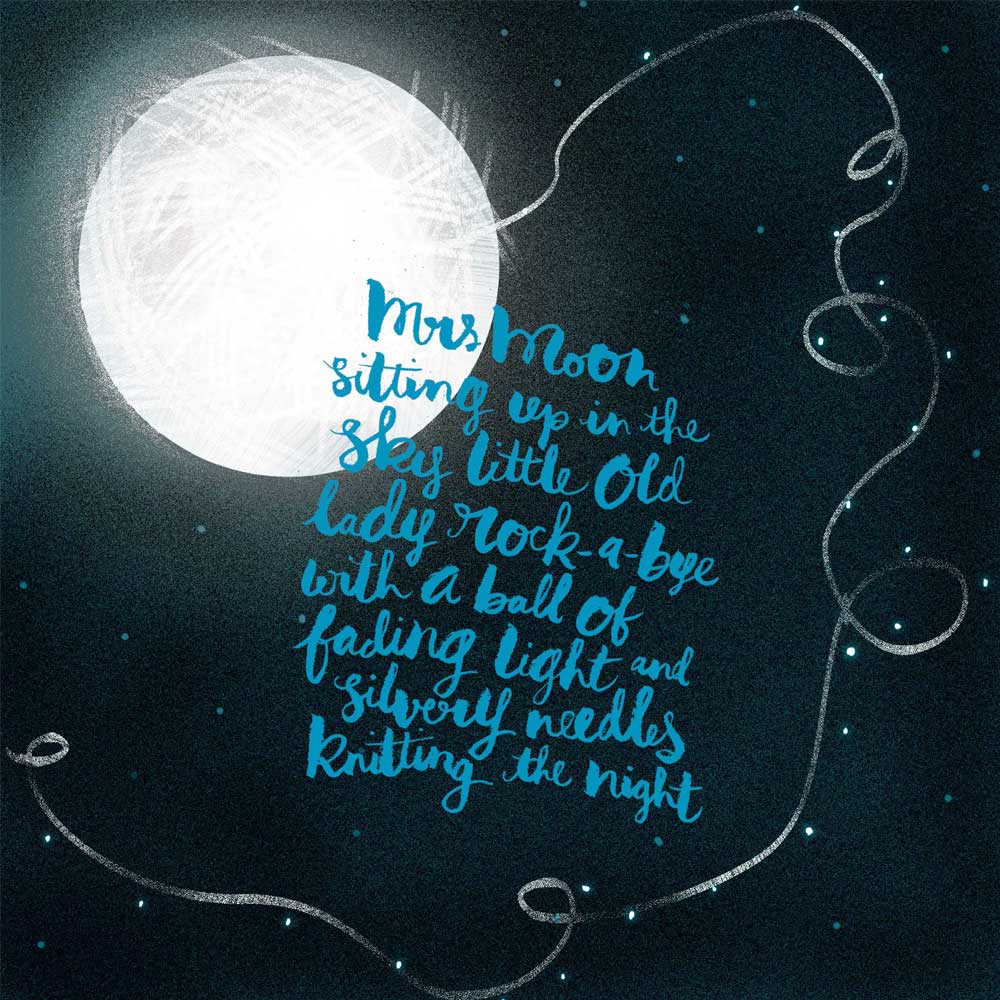 Mrs Moon
sitting up in the
sky little old
lady rock-a-bye
with a ball of
fading light and
silvery needles
knitting the night